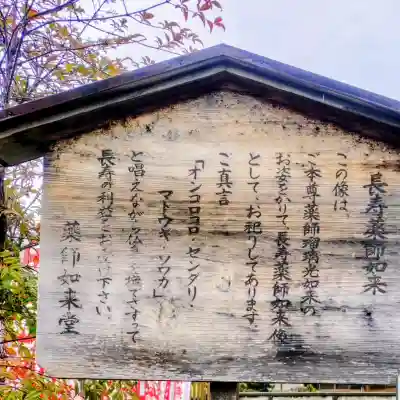 長寿薬師如来
この像は、
ご本尊薬師瑠璃光如来の
お姿をかりて、長寿薬師如来像
として、お祀りしてあります。
ご真言
「オンコロコロ・センダリ・
マトウギ・ソワカ」
と唱えながら仏さまを撫でさすって
長寿の利益をお受け下さい。
薬師如来堂